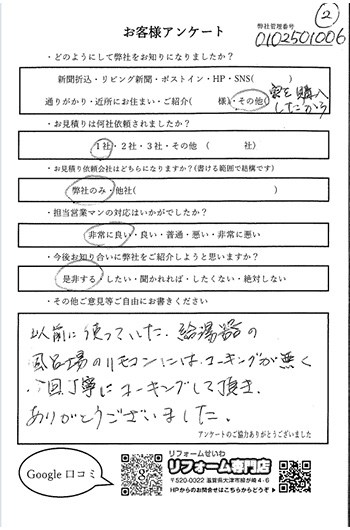 ②
お客様アンケート
弊社管理番号
0102501006
・どのようにして弊社をお知りになりましたか？
新聞折込・リビング新聞・ポストイン・HP・SNS(　　　)
通りがかり・近所にお住まい・ご紹介(　　様)・その他(家を購入
したから
・お見積りは何社依頼されましたか？
1社・2社・3社・その他　(　　　社)
・お見積り依頼会社はどちらになりますか？(書ける範囲で結構です)
弊社のみ・他社(　　　　　　　)
・担当営業マンの対応はいかがでしたか？
非常に良い・良い・普通・悪い・非常に悪い
・今後お知り合いに弊社をご紹介しようと思いますか？
是非する・したい・聞かれれば・したくない・絶対しない
・その他ご意見等ご自由にお書きください
以前に使っていた、給湯器の
風呂場のリモコンにはコーキングが無く
今回丁寧にコーキングして頂き、
ありがとうございました。
アンケートのご協力ありがとうございました
Google口コミ
リフォームせいわ
リフォーム専門店
〒520-0022 滋賀県大津市柳が崎4-6
HPからのお問合せはこちらからどうぞ